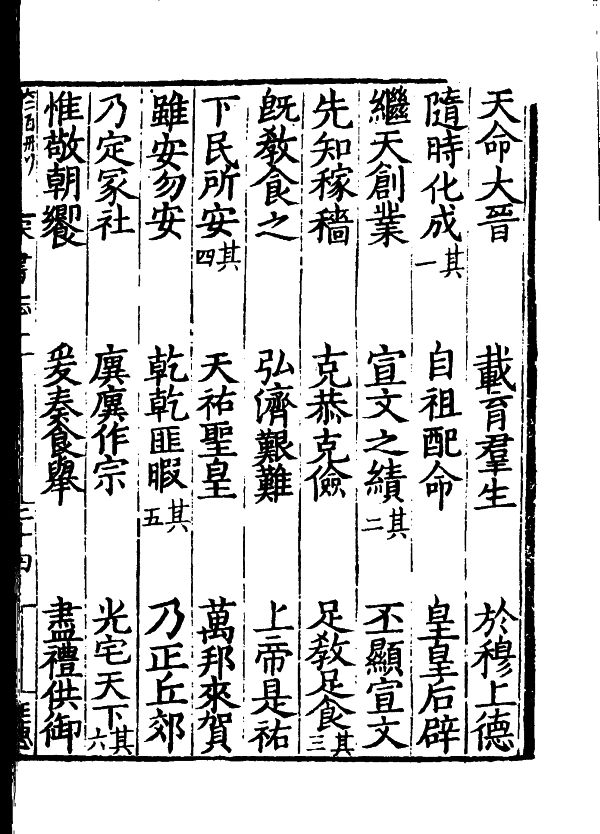 天命大晉　載育羣生　於穆上德
隨時化成其一　自祖配命　皇皇后辟
繼天創業　宣文之績其二　丕顯宣文
先知稼穡　克恭克儉　足敎足食其三
旣敎食之　弘濟艱難　上帝是祐
下民所安其四　天祐聖皇　萬邦來賀
雖安勿安　乾乾匪暇其五　乃正丘郊
乃定冢社　廙廙作宗　光宅天下其六
惟敬朝饗　爰奏食舉　盡禮供御